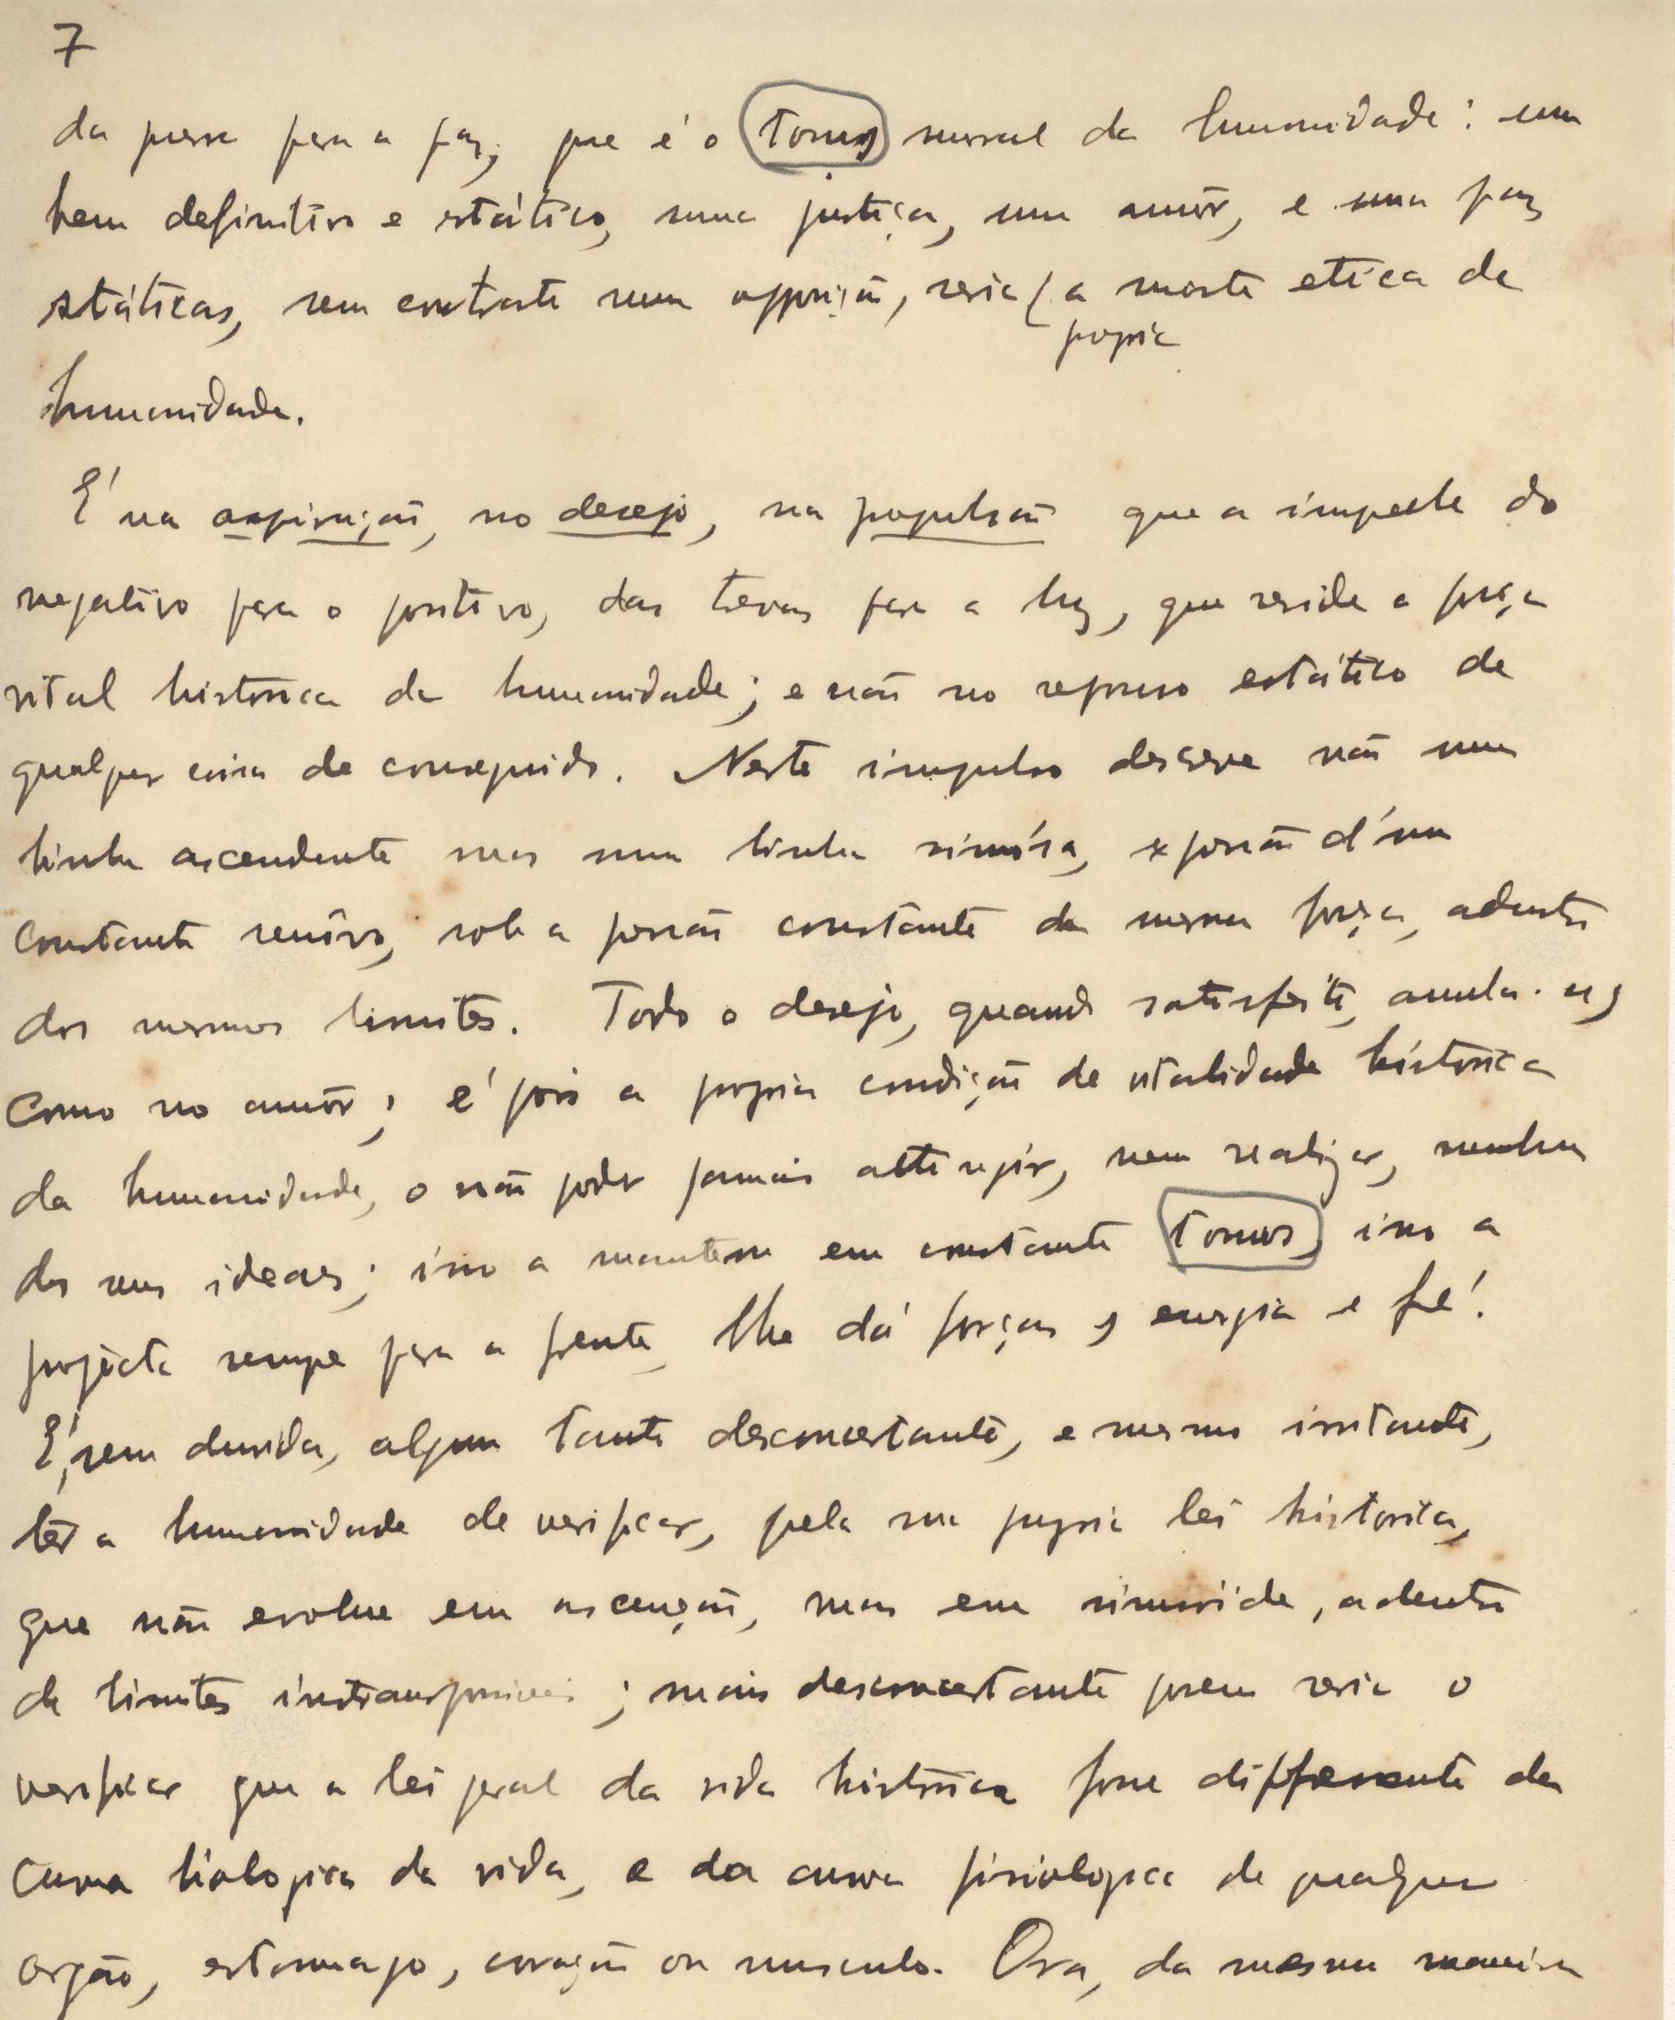 7
da guerra para a paz, que é o tonus moral da humanidade: um
bem definitivo e estático, uma justiça, um amôr, e uma paz
státicas, sem contraste nem opposição, seria a morte etica da
propria
humanidade.
É na aspiração, no desejo, na propulsão que a impelle do
negativo para o positivo, das trevas para a luz, que reside a força
vital historica da humanidade; e não no repouso estático de
qualquer coisa de conseguido. Neste impulso descreve não uma
linha ascendente mas uma linha sinuósa, expressão d'um
constante renôvo, sob a pressão constante da mesma força, adentro
dos mesmos limites. Todo o desejo, quando satisfeito, annula-se,
como no amôr; é pois a propria condição de vitalidade historica
da humanidade, o não poder jamais attingir, nem realizar, nenhum
dos seus ideaes; isso a mantem em constante tonus, isso a
projecta sempre para a frente, lhe dá forças, energia e fé!
É, sem duvida, algum tanto desconcertante, e mesmo irritante,
têr a humanidade de verificar, pela sua propria lei historica,
que não evolue em ascenção, mas em sinusóide, adentro
de limites instransponiveis; mais desconcertante porem seria o
verificar que a lei geral da vida histórica fosse differente da
curva biologica da vida, e da curva fisiologica de qualquer
orgão, estomago, coração ou musculo. Ora, da mesma maneira